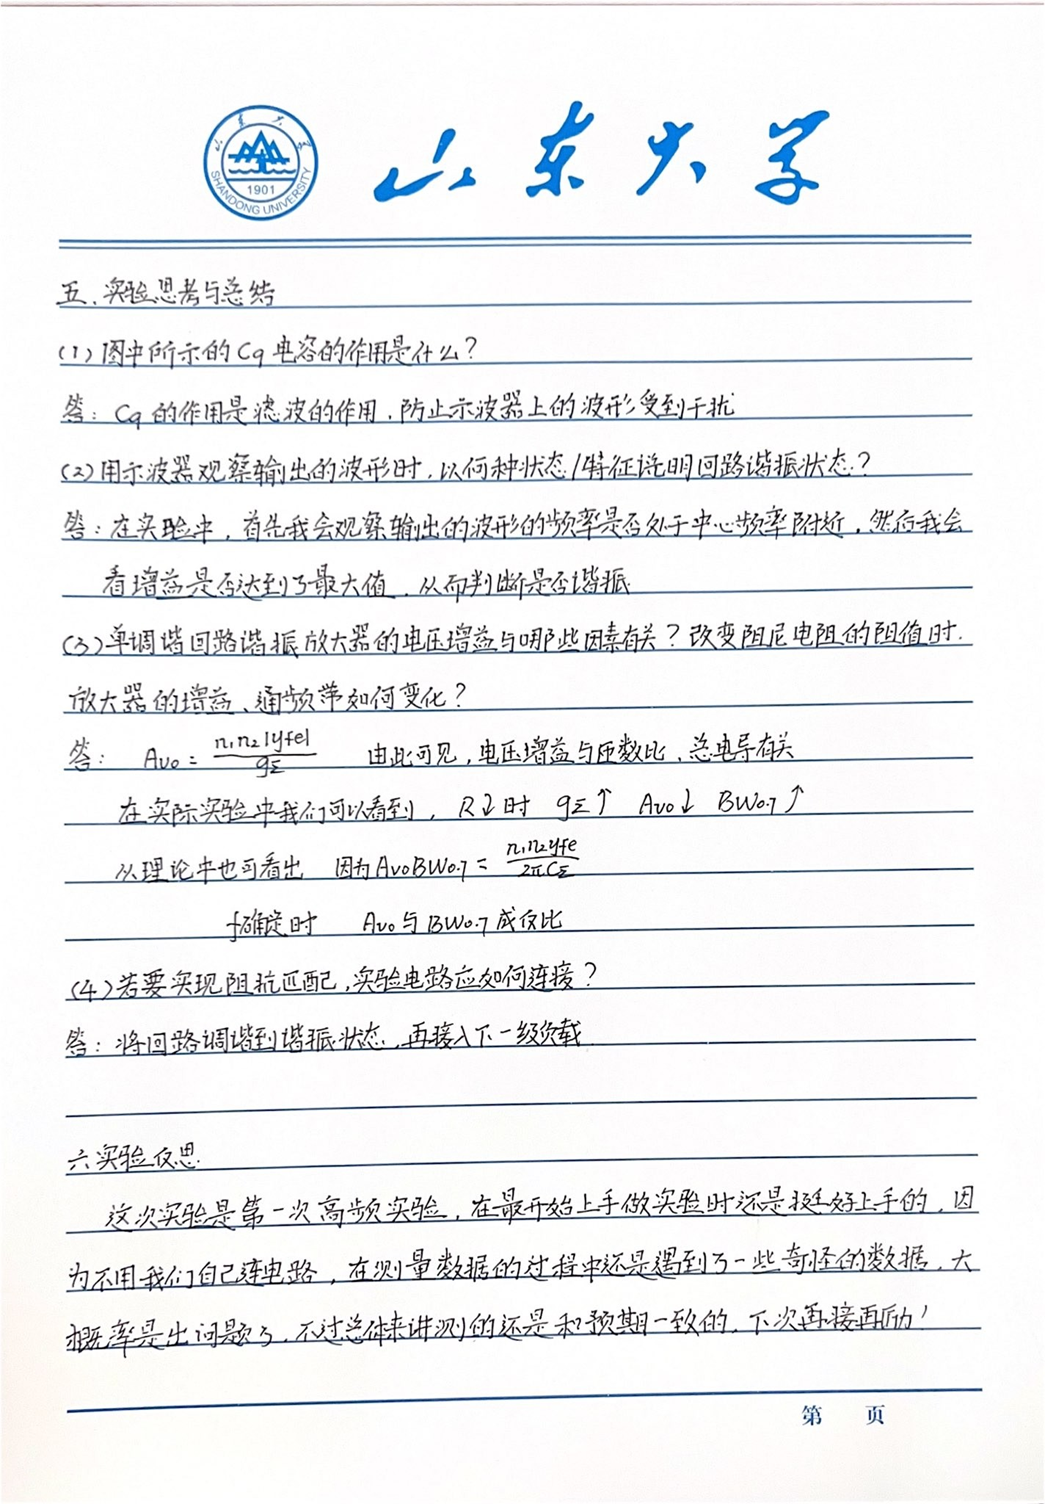 山东大学
山东大学
SHANDONG UNIVERSITY
1901
五、实验思考与总结
(1)图中所示的C9电容的作用是什么?
答: C9的作用是滤波的作用,防止示波器上的波形受到干扰
(2)用示波器观察输出的波形时,以何种状态/特征说明回路谐振状态?
答:在实验中,首先我会观察输出的波形的频率是否处于中心频率附近,然后我会
看增益是否达到了最大值,从而判断是否谐振
(3)单调谐回路谐振放大器的电压增益与哪些因素有关?改变阻尼电阻的阻值时,
放大器的增益、通频带如何变化?
答: Avo = n₁n₂|yfe| / gΣ 由此可见,电压增益与匝数比、总电导有关
在实际实验中我们可以看到, R↓时 gΣ↑ Avo↓ BW0.7↑
从理论中也可看出 因为AvoBW0.7 = n₁n₂yfe / 2πCΣ
f确定时 Avo与BW0.7成反比
(4)若要实现阻抗匹配,实验电路应如何连接?
答:将回路调谐到谐振状态,再接入下一级负载
六实验反思
这次实验是第一次高频实验,在最开始上手做实验时还是挺好上手的,因
为不用我们自己连电路,在测量数据的过程中还是遇到了一些奇怪的数据,大
概率是出问题了,不过总体来讲测的还是和预期一致的,下次再接再励!
第 页